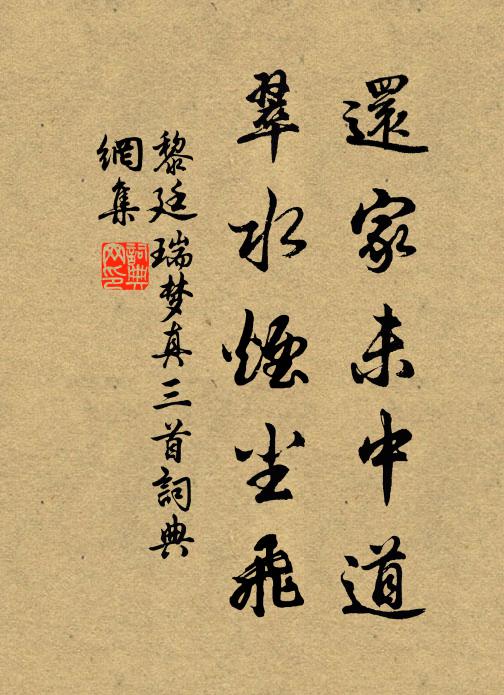 還家未中道
翠水煙尘飛
黎廷瑞梦真三首詞典
網集
詞典
网印